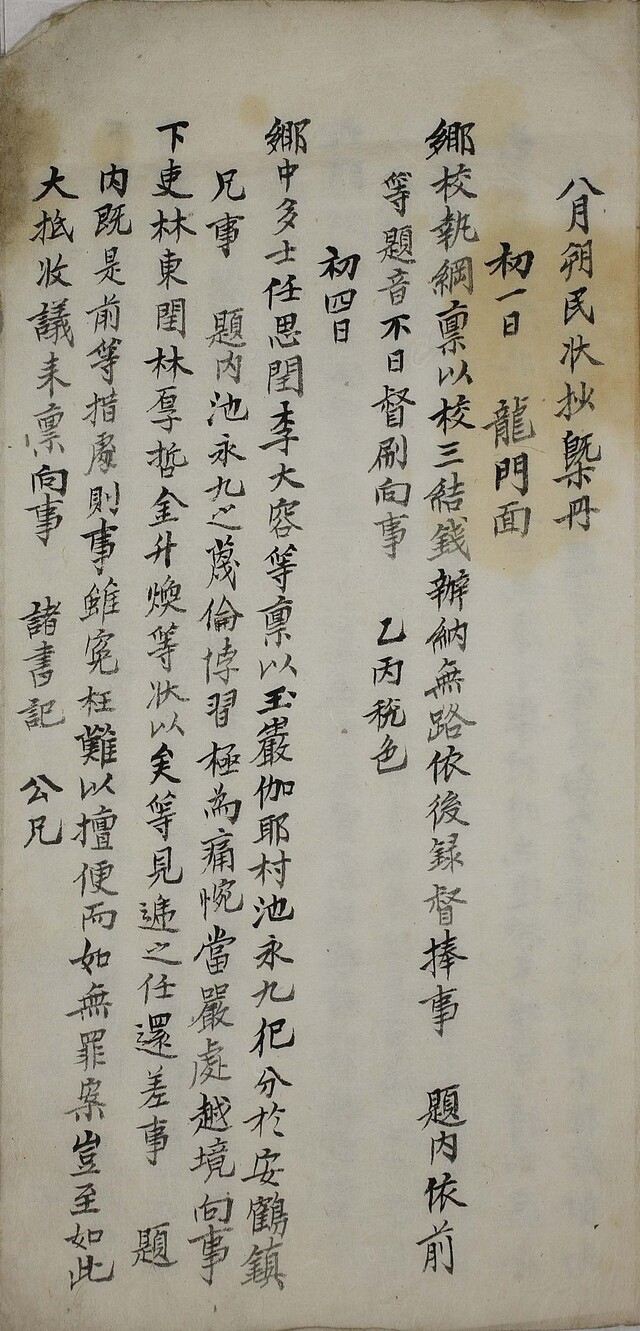 八月朔民状抄槩冊
初一日 龍門面
鄉校執綱稟以校三結錢辦納無路依後錄督捧事 題內依前
等題音不日督刷向事 乙丙稅色
初四日
鄉中多士任思閏李大容等稟以玉巖伽耶村池永九犯分於安鶴鎮
兄事 題內池永九之蔑倫悖習極為痛惋當嚴處越境向事
下吏林東閏林厚哲金升煥等状以矣等見遞之任還差事 題
內旣是前等措處則事雖寃枉難以擅便而如無罪案豈至如此
大抵收議来稟向事 諸書記 公兄